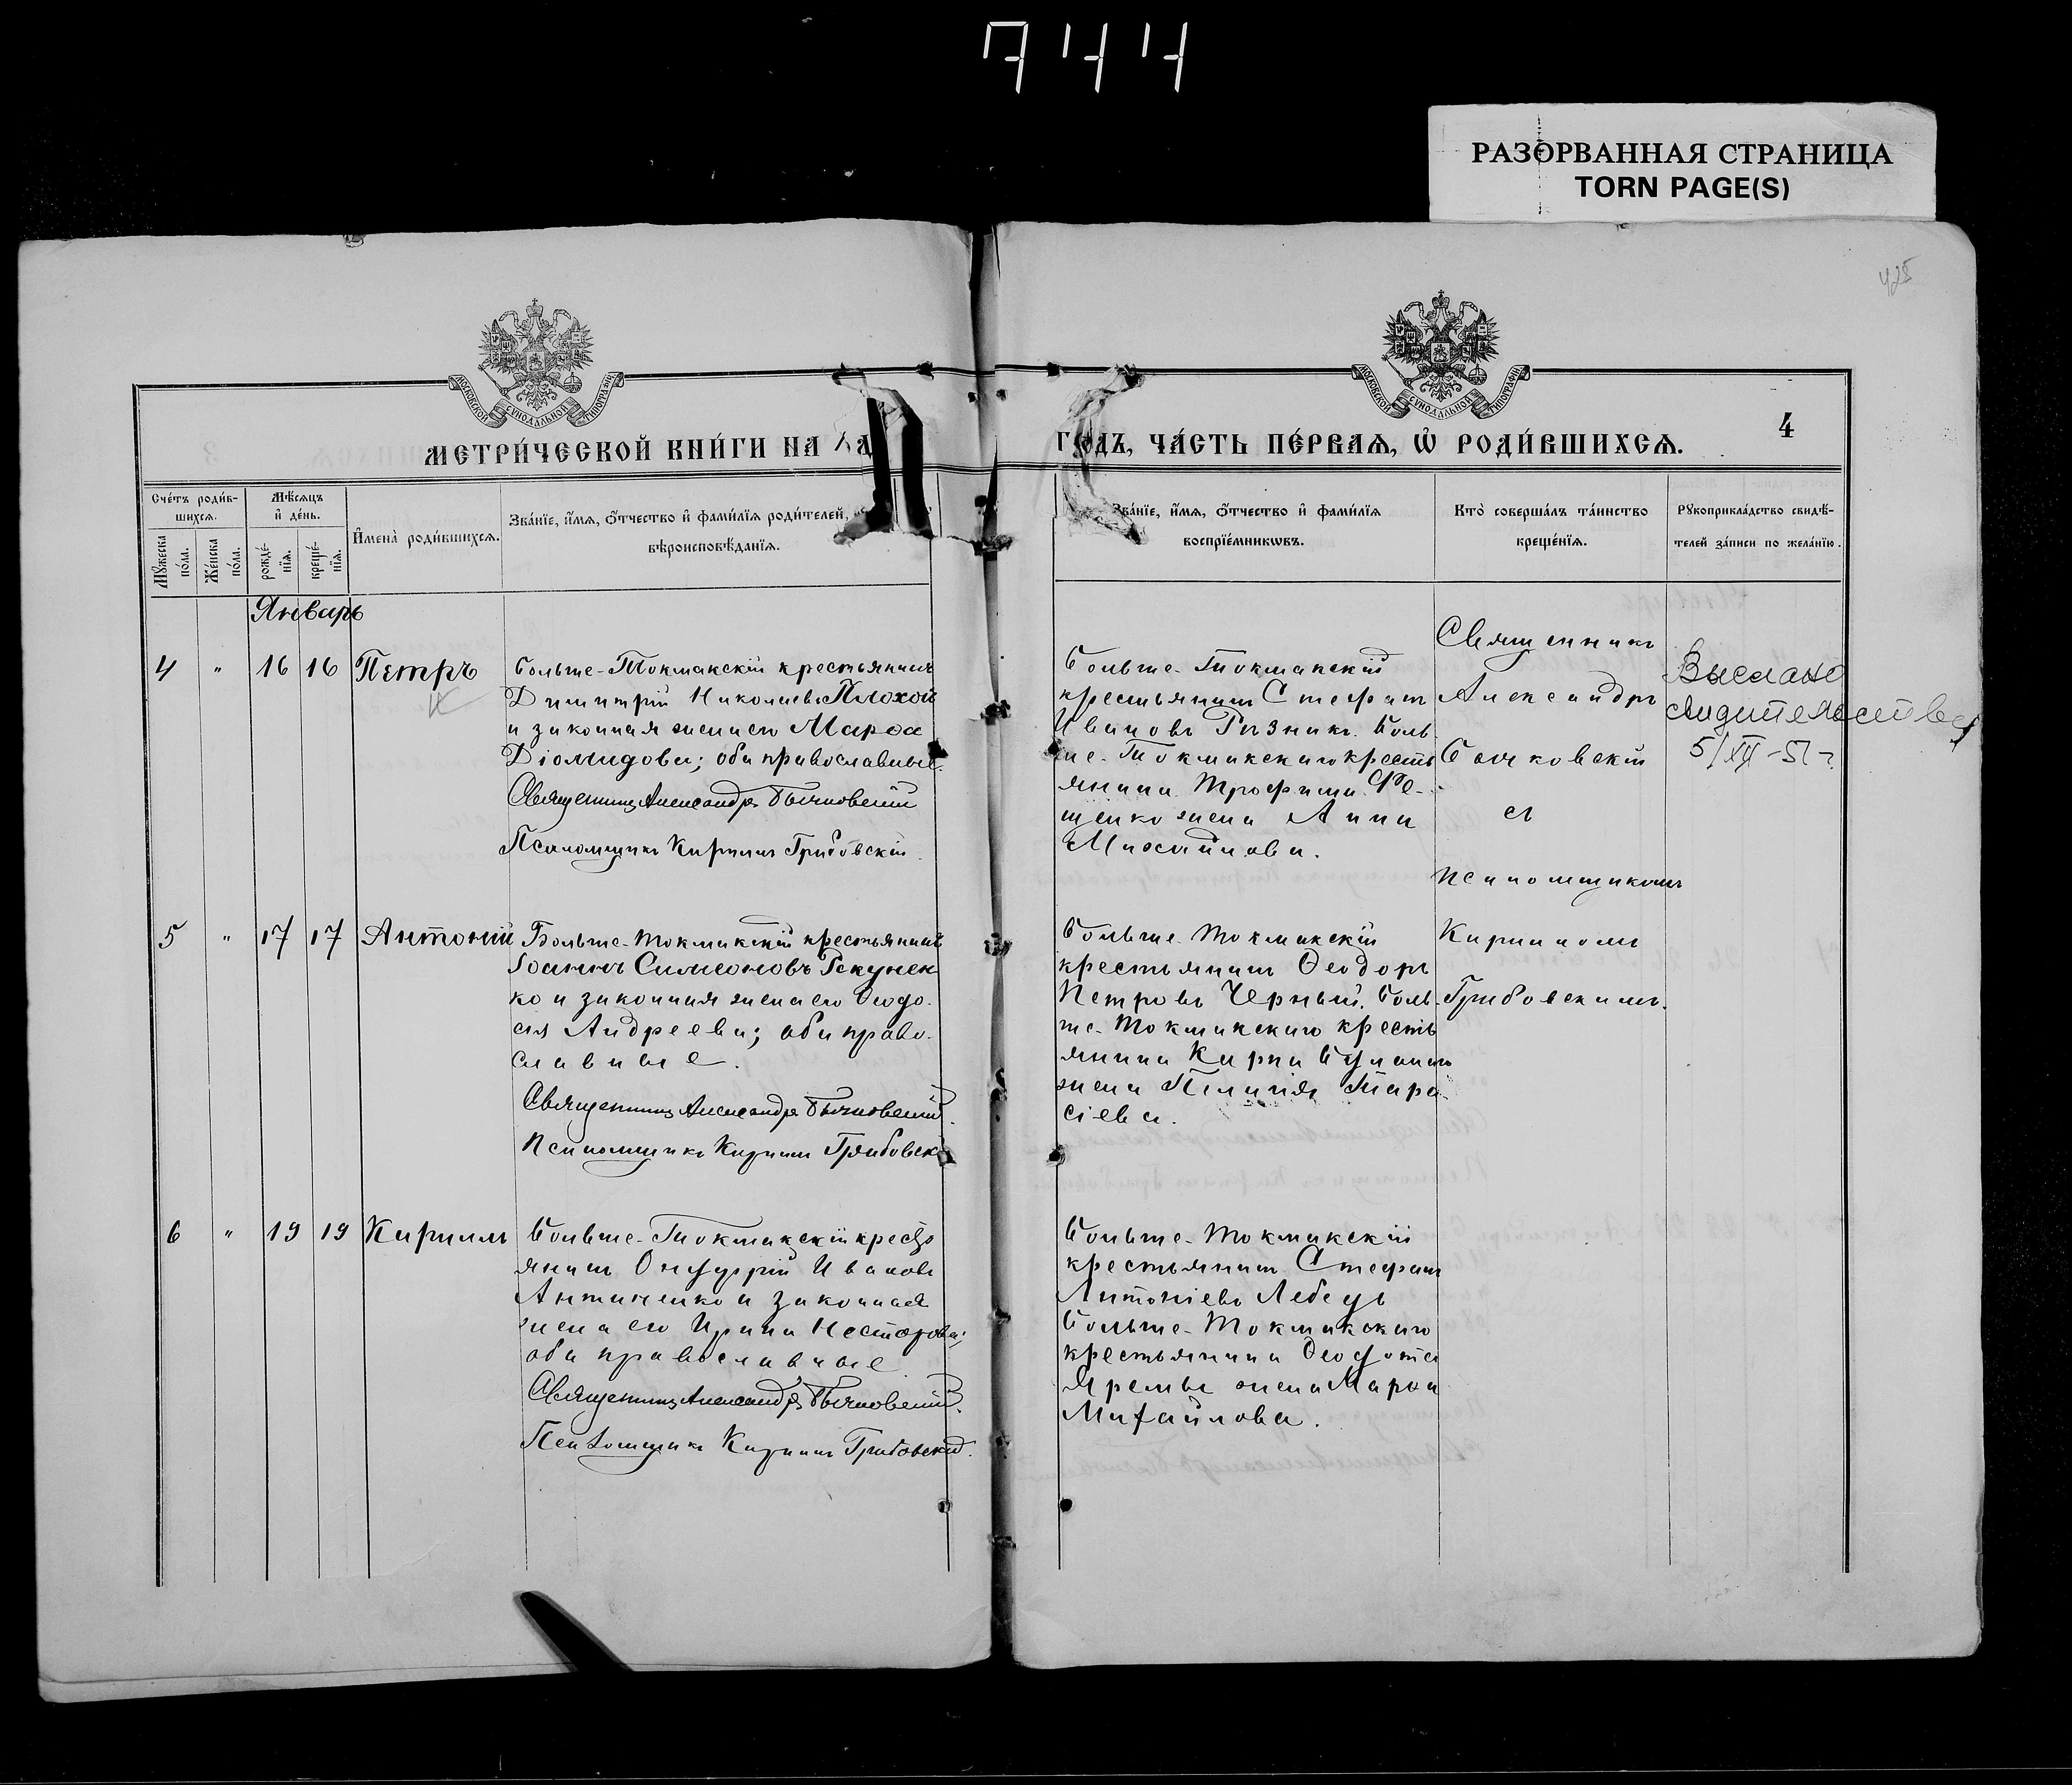 744
РАЗОРВАННАЯ СТРАНИЦА
TORN PAGE(S)
428
МОСКОВСКОЙ СУНОДАЛЬНОЙ ТИПОГРАФІИ
МОСКОВСКОЙ СУНОДАЛЬНОЙ ТИПОГРАФІИ
МЕТРИ́ЧЕСКОЙ КНИ́ГИ НА
ГОДЪ, ЧА́СТЬ ПЕ́РВАѦ, Ѡ҆ РОДИ́ВШИХСѦ.
4
Сче́тъ роди́в-
шихсѧ.
Мѣ́сѧцъ
и҆ де́нь.
Мꙋ́жеска по́ла.
Же́нска по́ла.
рожде́-
нїѧ.
креще́-
нїѧ.
И҆мена̀ роди́вшихсѧ.
Зва́нїе, и҆́мѧ, ѻ҆́тчество и҆ фами́лїѧ роди́телей,
вѣроисповѣ́данїѧ.
Зва́нїе, и҆́мѧ, ѻ҆́тчество и҆ фами́лїѧ
воспрїе́мникѡвъ.
Кто̀ соверша́лъ та́инство
креще́нїѧ.
Рꙋкоприкла́дство свидѣ́-
телей за́писи по жела́нїю.
Январь
4 " 16 16 Петръ
Больше-Токмакскій крестьянинъ
Димитрій Николаевъ Плохой
и законная жена его Марѳа
Діомидова; оба православные.
Священникъ Александръ Бычковскій
Псаломщикъ Кириллъ Грибовскій.
Больше-Токмакскій
крестьянинъ Стефанъ
Ивановъ Ризникъ. Боль-
ше-Токмакскаго кресть
янина Трофима Фе-
щенко жена Анна
Михайлова.
Священникъ
Александръ
Бычковскій
съ
псаломщикомъ
Кирилломъ
Грибовскимъ.
Выслано
свидительство
5/XII-51 г.
5 " 17 17 Антоній
Больше-Токмакскій крестьянинъ
Іоаннъ Симеоновъ Гекунен
ко и законная жена его Ѳеодо-
сія Андреева; оба право-
славные.
Священникъ Александръ Бычковскій.
Псаломщикъ Кириллъ Грибовскі
Больше-Токмакскій
крестьянинъ Ѳеодоръ
Петровъ Черный. Боль-
ше-Токмакскаго кресть
янина Карпа
жена Пелагія Тара-
сіева.
6 " 19 19 Кириллъ
Больше-Токмакскій кресть
янинъ Онуфрій Ивановъ
Антиненко и законная
жена его Ирина Несторова;
оба православные
Священникъ Александръ Бычковскій.
Псаломщикъ Кириллъ Грибовскій.
Больше-Токмакскій
крестьянинъ Стефанъ
Антоніевъ Лебедь
Больше-Токмакскаго
крестьянина Ѳеодота
Яремы жена Марѳа
Михайлова.